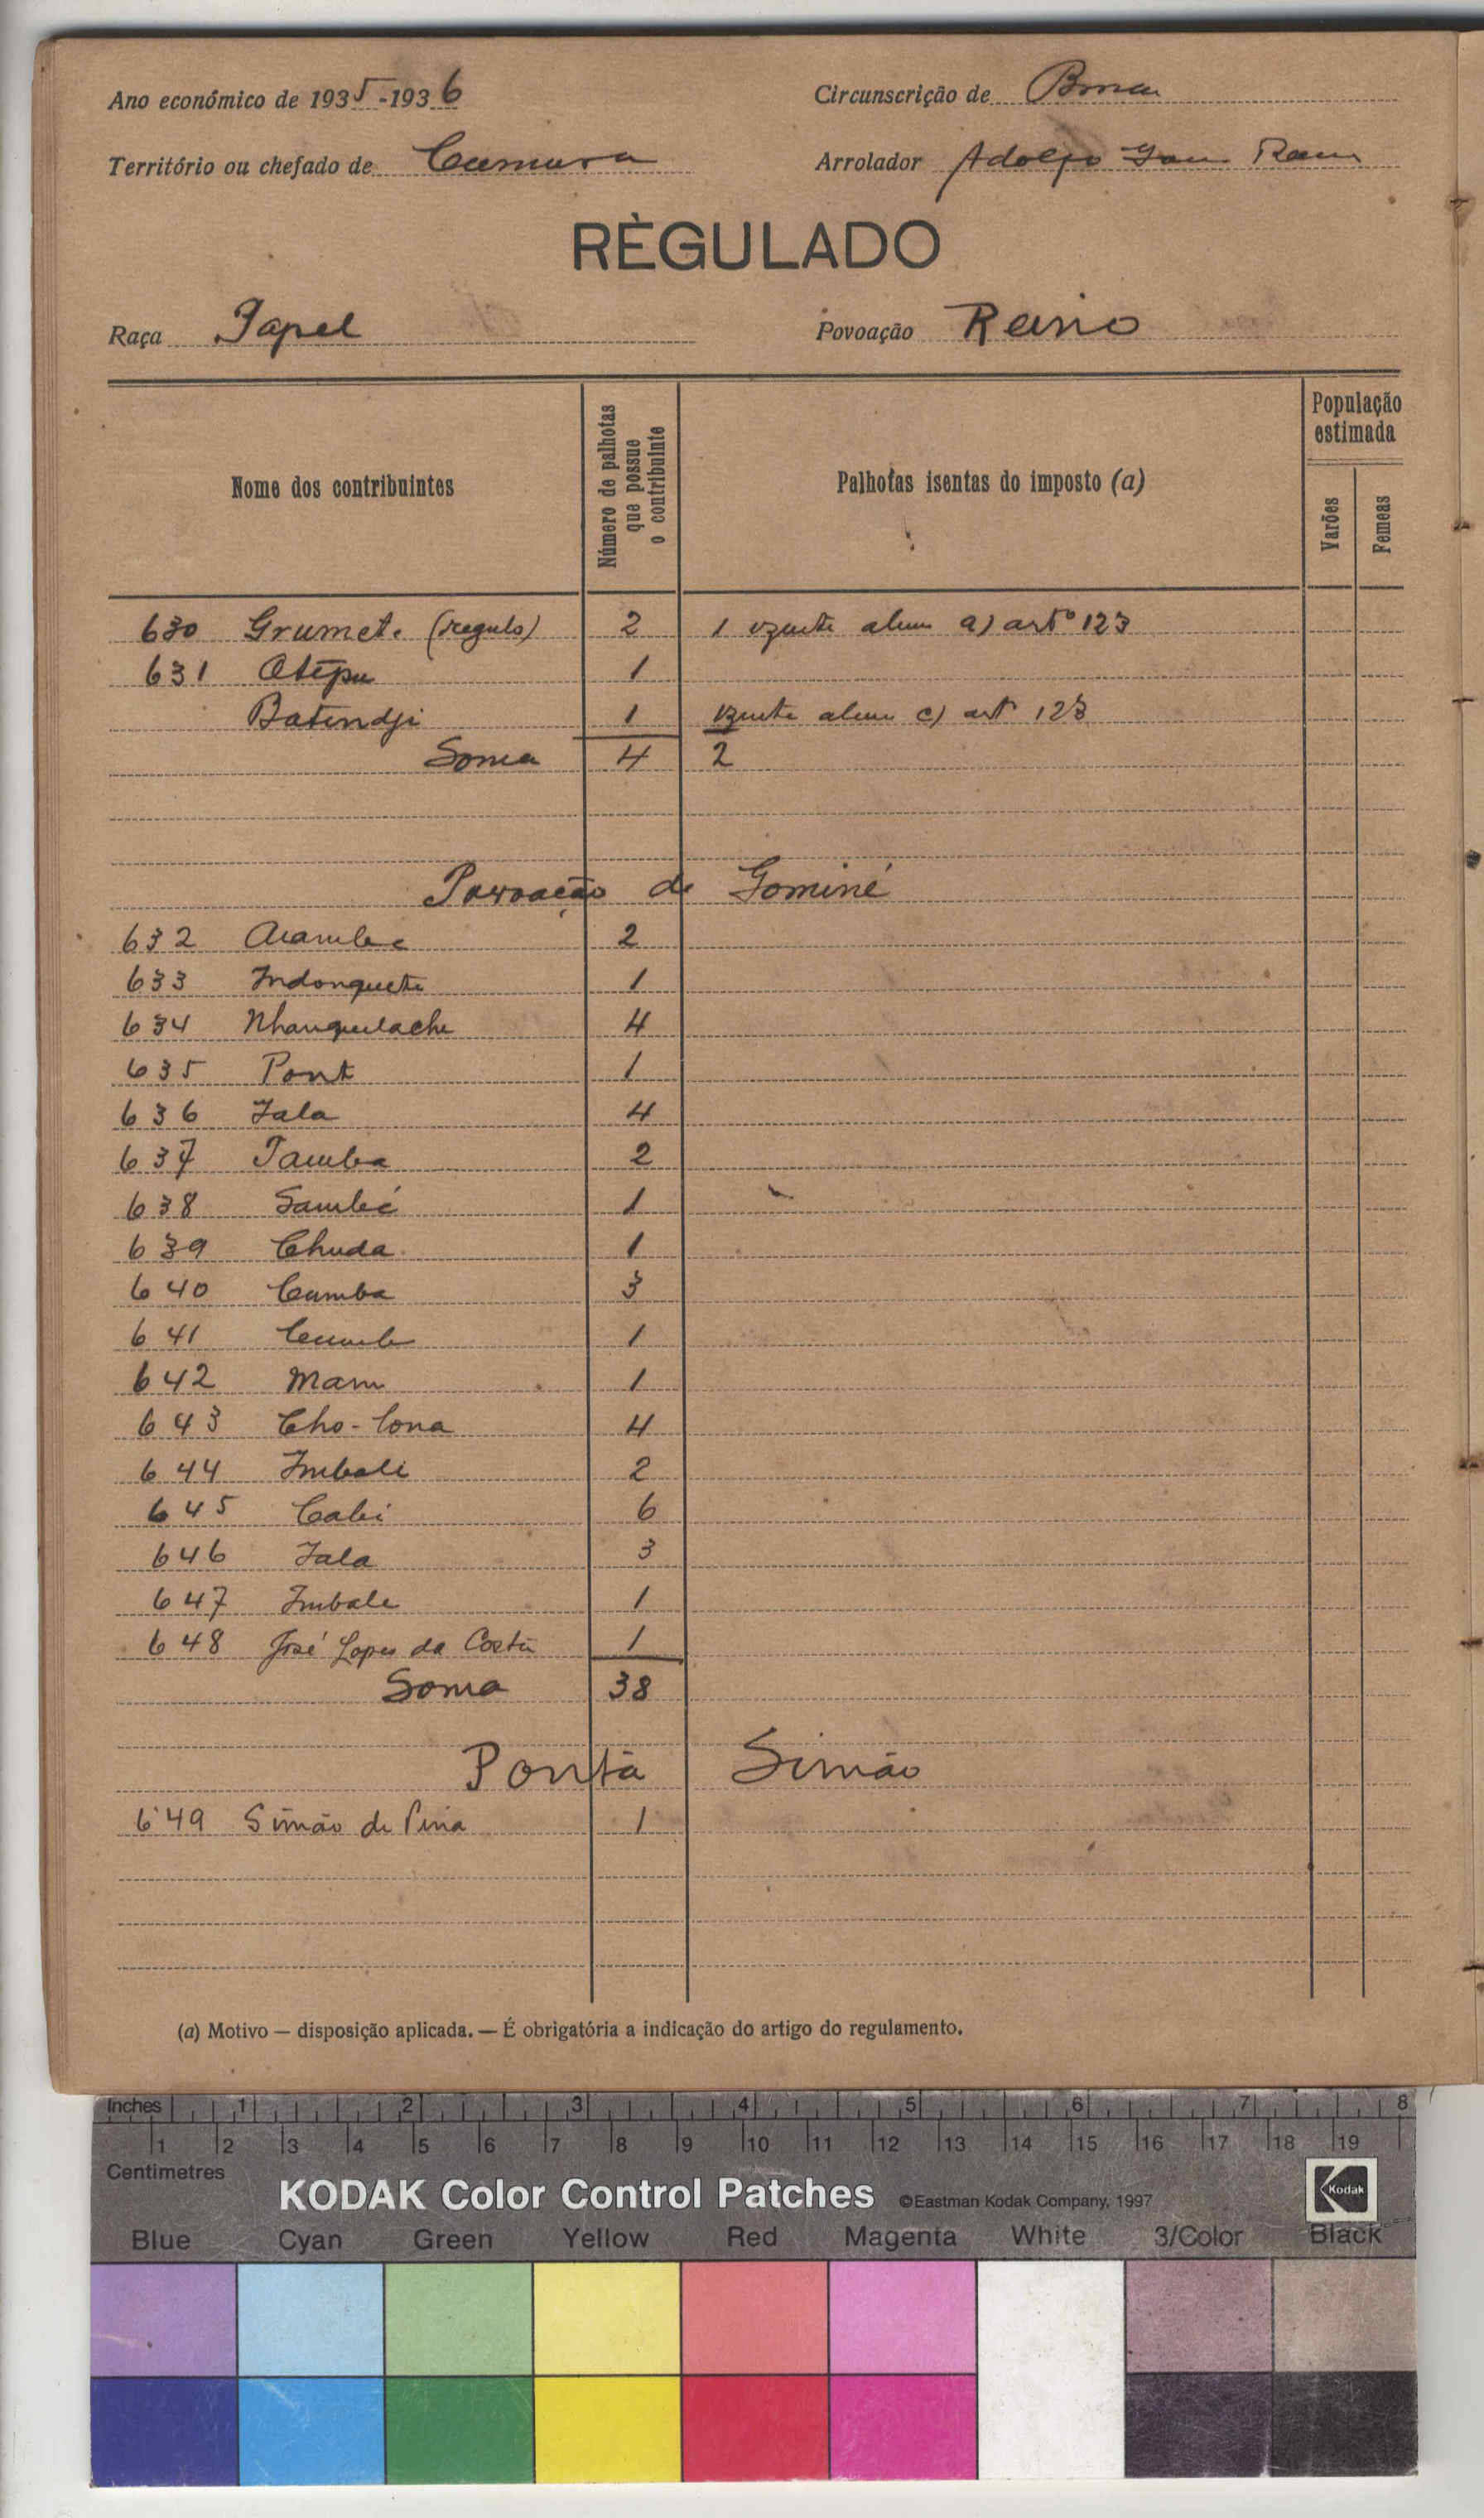 Ano económico de 1935-1936
Circunscrição de
Território ou chefado de
Arrolador Adolfo
RÈGULADO
Raça Papel
Povoação Reino
Nome dos contribuintes
Número de palhotas que possue o contribuinte
Palhotas isentas do imposto (a)
População estimada
Varões
Femeas
630 Grumete (regulo) 2 1 a) artº 123
631 1
Batendji 1 c) artº 123
Soma 4 2
Povoação de Gominé
632 2
633 Indonquete 1
634 Nhanguelache 4
635 Pont 1
636 Jala 4
637 Tamba 2
638 Sambé 1
639 Chuda 1
640 Cumba 3
641 1
642 Mam 1
643 Cho-lona 4
644 Imbali 2
645 Cabi 6
646 Jala 3
647 Imbale 1
648 José Lopes da Costa 1
Soma 38
Ponta Simão
649 Simão de Pina 1
(a) Motivo — disposição aplicada. — É obrigatória a indicação do artigo do regulamento.
Inches 1 2 3 4 5 6 7 8
1 2 3 4 5 6 7 8 9 10 11 12 13 14 15 16 17 18 19
Centimetres
KODAK Color Control Patches ©Eastman Kodak Company, 1997 Kodak
Blue Cyan Green Yellow Red Magenta White 3/Color Black